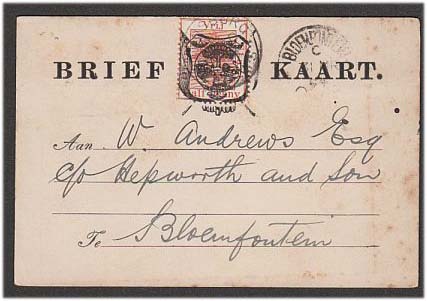 BRIEF KAART.
Aan W. Andrews Esq
c/o Hepworth and Son
Te Bloemfontein